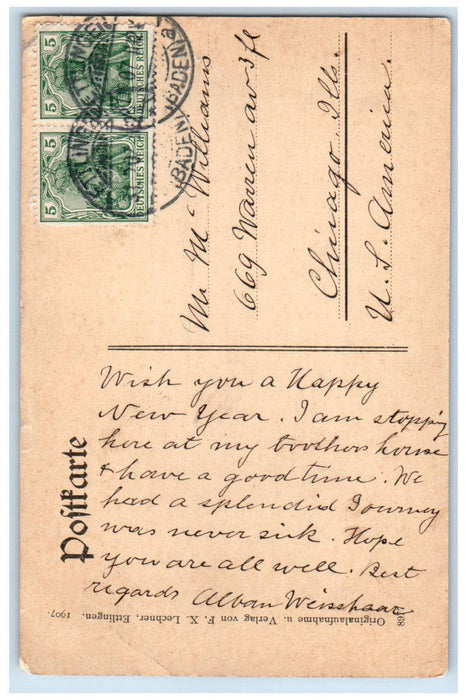 Postkarte
5
DEUTSCHES REICH
5
DEUTSCHES REICH
ETTLINGEN
(BADEN)
ETTLINGEN
(BADEN)
Mr. Mc Williams
669 Warren av 3fl
Chicago Ills.
U. S. America.
Wish you a Happy
New Year. I am stopping
here at my brothers house
& have a good time. We
had a splendid Journey
was never sick. Hope
you are all well. Best
regards Alban Weisshaar
68 Originalaufnahme u. Verlag von F. X. Lechner, Ettlingen. 1907.